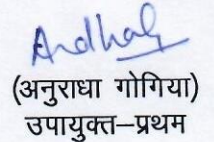 (अनुराधा गोगिया)
उपायुक्त–प्रथम